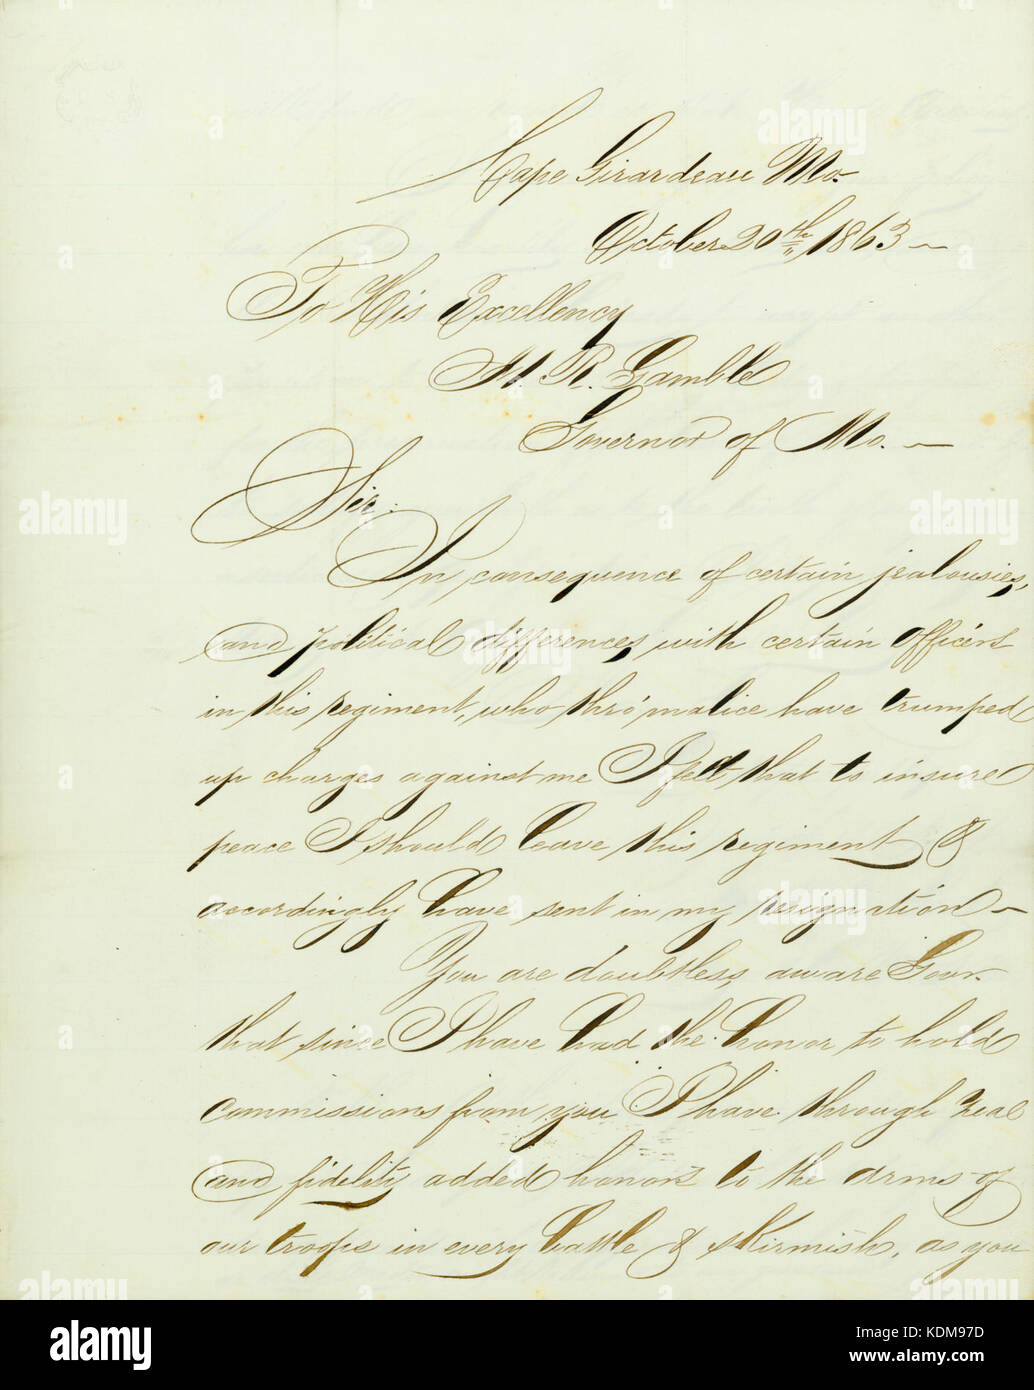 Cape Girardeau Mo.
October 20th, 1863 —
To His Excellency
H. R. Gamble
Governor of Mo. —
Sir:
In consequence of certain jealousies,
and political differences, with certain officers
in this regiment, who thro' malice have trumped
up charges against me I felt that to insure
peace I should leave this regiment &
accordingly have sent in my resignation —
You are doubtless aware Gov.
that since I have had the honor to hold
commissions from you I have through zeal
and fidelity added honors to the arms of
our troops in every battle & skirmish, as you
alamy
a
alamy stock photo
KDM97D
www.alamy.com